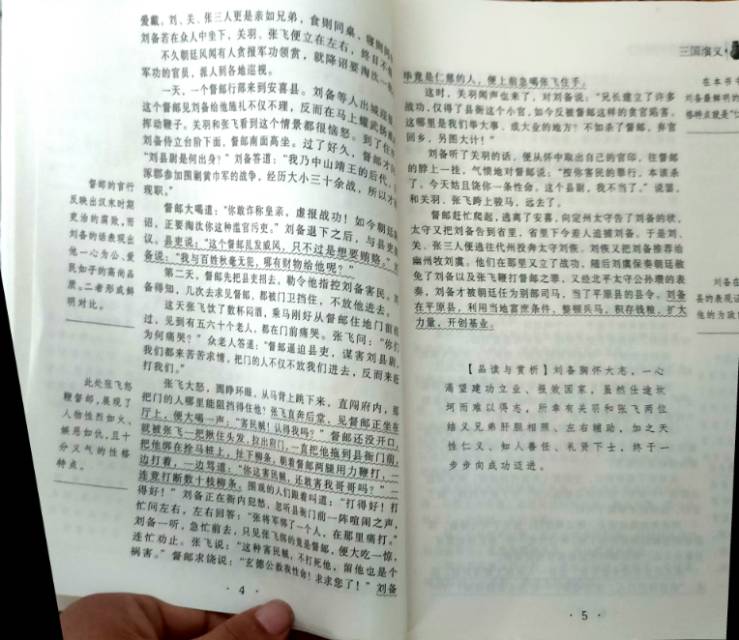 爱戴。刘、关、张三人更是亲如兄弟，食则同桌，寝则同
刘备若在众人中坐下，关羽、张飞便立在左右，终日不
不久朝廷风闻有人贪报军功领赏，就降诏要淘汰一
军功的官员，派人到各地巡视。
一天，一个督邮行部来到安喜县。刘备等人出城迎
这个督邮见刘备给他施礼不仅不理，反而在马上耀武扬威
挥动鞭子。关羽和张飞看到这个情景都很恼怒。到了住
刘备侍立台阶下面，督邮南面高坐。过了好久，督邮才
“刘县尉是何出身？”刘备答道：“我乃中山靖王的后代，
涿郡参加围剿黄巾军的战争，经历大小三十余战，所以才
现职。”
督邮大喝道：“你敢诈称皇亲，虚报战功！如今朝廷
诏，正要淘汰你这种滥官污吏。”刘备退下之后，与县吏
议，县吏说：“这个督邮乱发威风，只不过是想要贿赂。”
备说：“我与百姓秋毫无犯，哪有财物给他呢？”
第二天，督邮先把县吏招去，勒令他指控刘备害民。
备得知，几次去求见督邮，都被门卫挡住，不放他进去。
这天张飞饮了数杯闷酒，乘马刚好从督邮住地门前
过，见到有五六十个老人，都在门前痛哭。张飞问：“你们
为何痛哭？”众老人答道：“督邮逼迫县吏，谋害刘县尉，
我们都来苦苦求情。把门的人不仅不放我们进去，反而来
打我们。”
张飞大怒，圆睁环眼，从马背上跳下来，直闯府内，那
把门的人哪里能阻挡得住他？张飞直奔后堂，见督邮正坐在
厅上，便大喝一声：“害民贼！认得我吗？”督邮还没开口，
就被张飞一把揪住头发，拉出府门，一直把他拖到县衙门前，
把他绑在拴马桩上，扯下柳条，朝着督邮两腿用力鞭打，一
边打着，一边骂道：“你这害民贼，还敢害我哥哥吗？”一
连竟打断数十枝柳条。围观的人们跟着叫道：“打得好！打
得好！”刘备正在衙内犯愁，忽听县衙门前一阵喧闹之声，
忙问左右，左右回答：“张将军绑了一个人，在那里痛打。”
刘备一听，急忙前去，只见张飞绑的竟是督邮，便大吃一惊，
连忙劝止。张飞说：“这种害民贼，不打死他，留他也是个
祸害。”督邮求饶说：“玄德公救我性命！求求您了！”刘备
督邮的言行
反映出汉末时期
吏治的腐败，而
刘备的话表现出
他一心为公、爱
民如子的高尚品
质。二者形成鲜
明对比。
此处张飞怒
鞭督邮，展现了
人物性烈如火、
嫉恶如仇，且十
分义气的性格
特点。
· 4 ·
三国演义·
毕竟是仁慈的人，便上前急喝张飞住手。
这时，关羽闻声也来了，对刘备说：“兄长建立了许多
战功，仅得了县衙这个小官，如今反被督邮这样的贪官陷害。
这哪里是我们举大事、成大业的地方？不如杀了督邮，弃官
回乡，另图大计！”
刘备听了关羽的话，便从怀中取出自己的官印，往督邮
的脖上一挂，气愤地对督邮说：“按你害民的罪行，本该杀
了。今天姑且饶你一条性命，这个县尉，我不当了。”说罢，
和关羽、张飞跨上骏马，远去了。
督邮赶忙爬起，逃离了安喜，向定州太守告了刘备的状。
太守又把刘备告到省里，省里下令差人追捕刘备。于是刘、
关、张三人便逃往代州投奔太守刘恢。刘恢又把刘备推荐给
幽州牧刘虞。他们在那里又立了战功，随后刘虞保奏朝廷赦
免了刘备以及张飞鞭打督邮之罪，又经北平太守公孙瓒的表
奏，刘备才被朝廷任为别部司马，当了平原县的县令。刘备
在平原县，利用当地富庶条件，整顿兵马，积存钱粮，扩大
力量，开创基业。
【品读与赏析】刘备胸怀大志，一心
渴望建功立业、报效国家，虽然仕途坎
坷而难以得志，所幸有关羽和张飞两位
结义兄弟肝胆相照、左右辅助，加之天
性仁义、知人善任、礼贤下士，终于一
步步向成功迈进。
在本书中
刘备最鲜明的
格特点就是“仁
刘备在
县的表现证
他的为政
· 5 ·